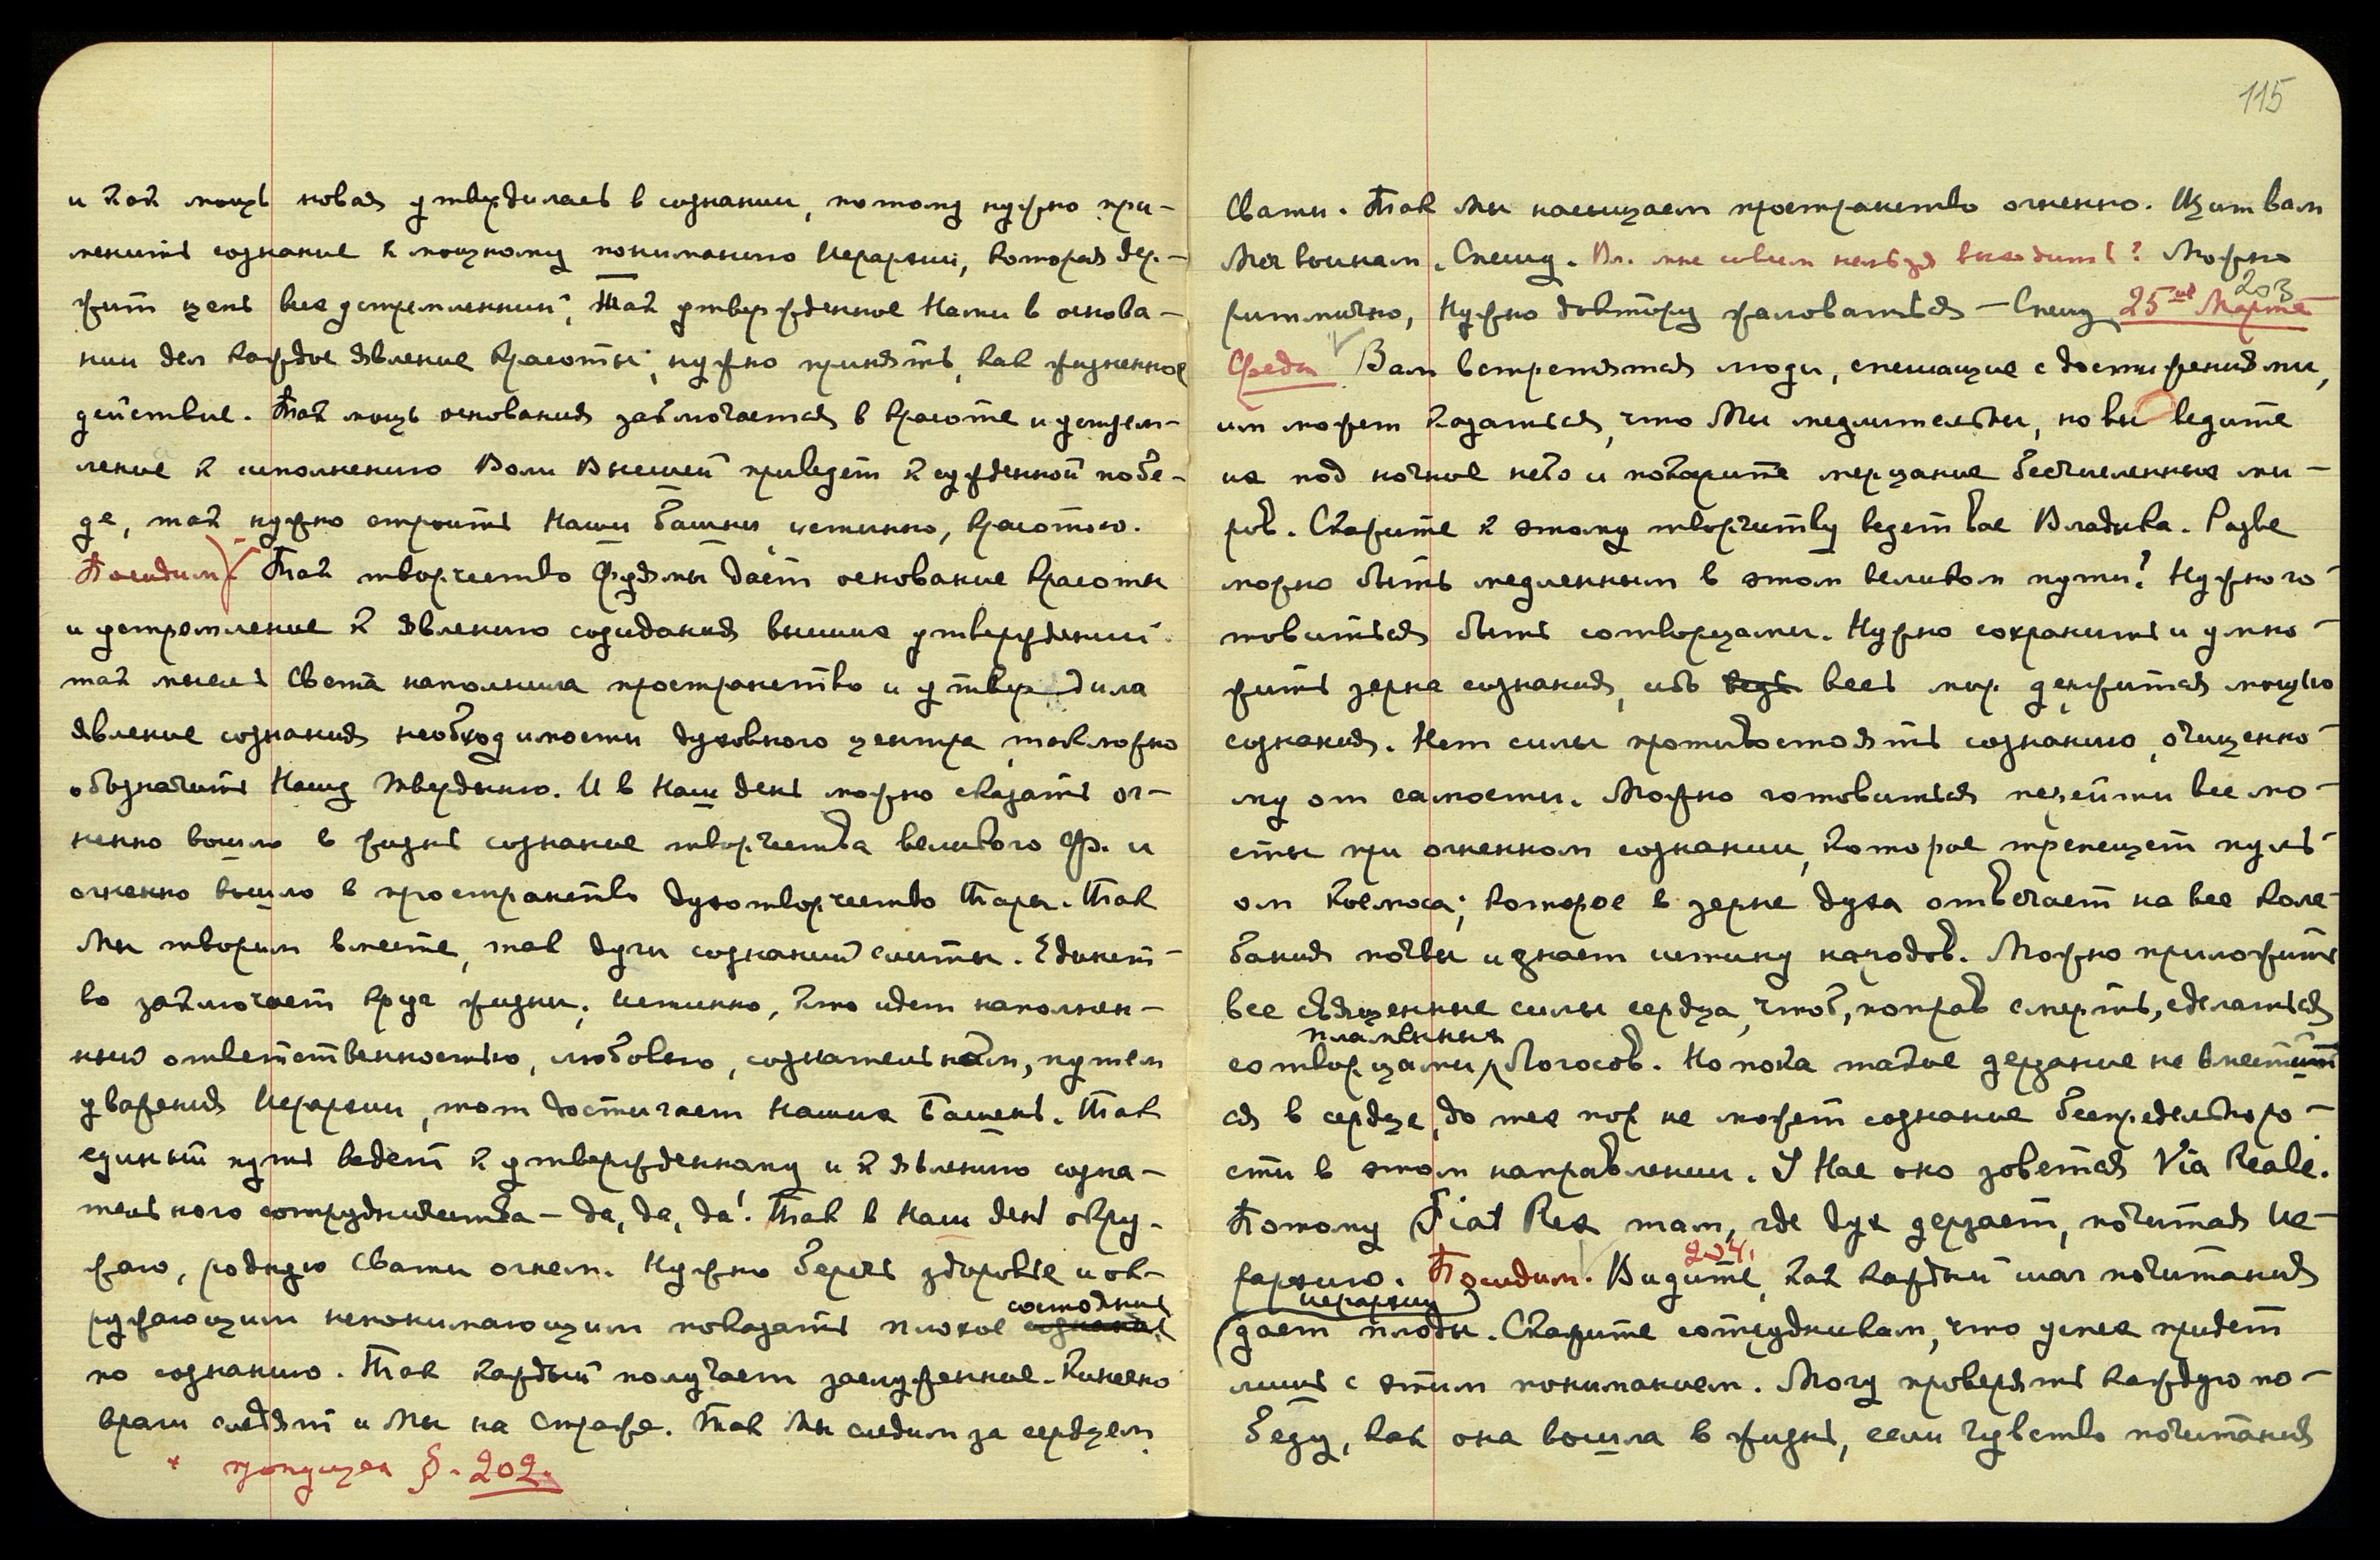 и как мощь новая утвердилась в сознании, потому нужно при-
менить сознание к мощному пониманию Иерархии, которая дер-
жит цепь всех устремлений; Так утвержденное Нами в основа-
нии дел каждое явление красоты; нужно принять, как жизненное
действие. Так мощь основания заключается в красоте и устрем-
ление к исполнению Воли Высшей приведет к сужденной побе-
де, так нужно строить Наши Башни, истинно, красотою.
Посидим. Так творчество Фуямы дает основание красоты
и устремление к явлению созидания высших утверждений.
так мысль Света наполнила пространство и утвердила
явление сознания необходимости духовного центра, так можно
обозначить Нашу Твердыню. И в Наш день можно сказать ог-
ненно вошло в жизнь сознание творчества великого Ф. и
огненно вошло в пространство духотворчество Тары. Так
Мы творим вместе, так лучи сознаний слиты. Единст-
во заключает круг жизни; истинно, кто идет наполнен-
ный ответственностью, любовью, сознательном, путем
уважения Иерархии, тот достигает Наших Башень. Так
единый путь ведет к утвержденному и к явлению созна-
тельного сотрудничества – да, да, да! Так в Наш день окру-
жаю, родную Свати огнем. Нужно беречь здоровье и ок-
ружающим непонимающим показать плохое состояние
по сознанию. Так каждый получает заслуженное.
враги следят и Мы на Страже. Так Мы следим за сердцем
* пропущен §. 202.
115
Свати. Так Мы насыщаем пространство огненно. Щит вам
Меч воинам. Спешу. Вл. мне совсем нельзя выходить? Можно
ритмично, Нужно доктору жаловаться – Спешу 25ое Марта
203
Среда Вам встретятся люди, спешащие с достижениями,
им может казаться, что Мы медлительны, но вы ведите
их под ночное небо и покажите мерцание бесчисленных ми-
ров. Скажите к этому творчеству ведет вас Владыка. Разве
можно быть медленным в этом великом пути? Нужно го-
товиться быть сотворцами. Нужно сохранить и умно-
жить зерна сознания, ибо весь мир держится мощью
сознания. Нет силы противостоять сознанию, очищенно-
му от самости. Можно готовиться перейти все мо-
сты при огненном сознании, которое трепещет пульс-
ом Космоса; которое в зерне духа отвечает на все коле-
бания почвы и знает истину народов. Можно приложить
все священные силы сердца, чтоб, поправ смерть, сделаться
пламенных
сотворцами Логосов. Но пока такое дерзание не вместит-
ся в сердце, до тех пор не может сознание беспредельно ро-
сти в этом направлении. У Нас оно зовется Via Reale.
Потому Fiat Rex там, где дух дерзает, почитая Ие-
рархию. Посидим. 204. Видите, как каждый шаг почитания
иерархии
дает плоды. Скажите сотрудникам, что успех придет
лишь с этим пониманием. Могу проверять каждую по-
беду, как она вошла в жизнь, если чувство почитания